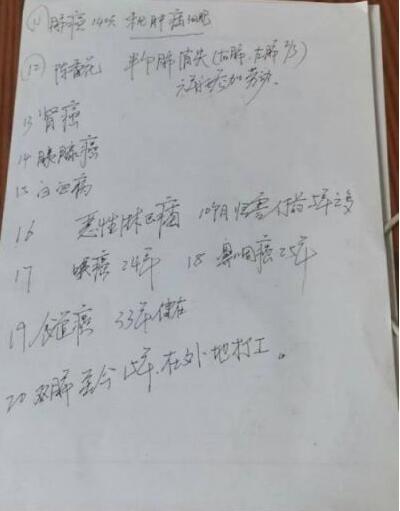 (11) 肺癌 14次 未见肿瘤细胞
(12) 陈春花 半个肺消失(右肺.左肺2/3)
参加劳动.
13 肾癌
14 胰腺癌
15 白血病
16 恶性淋巴瘤 10个月 5年之多
17 喉癌 24年 18 鼻咽癌 25年
19 食道癌 33年健在
20 双肺至今15年.在外地打工。